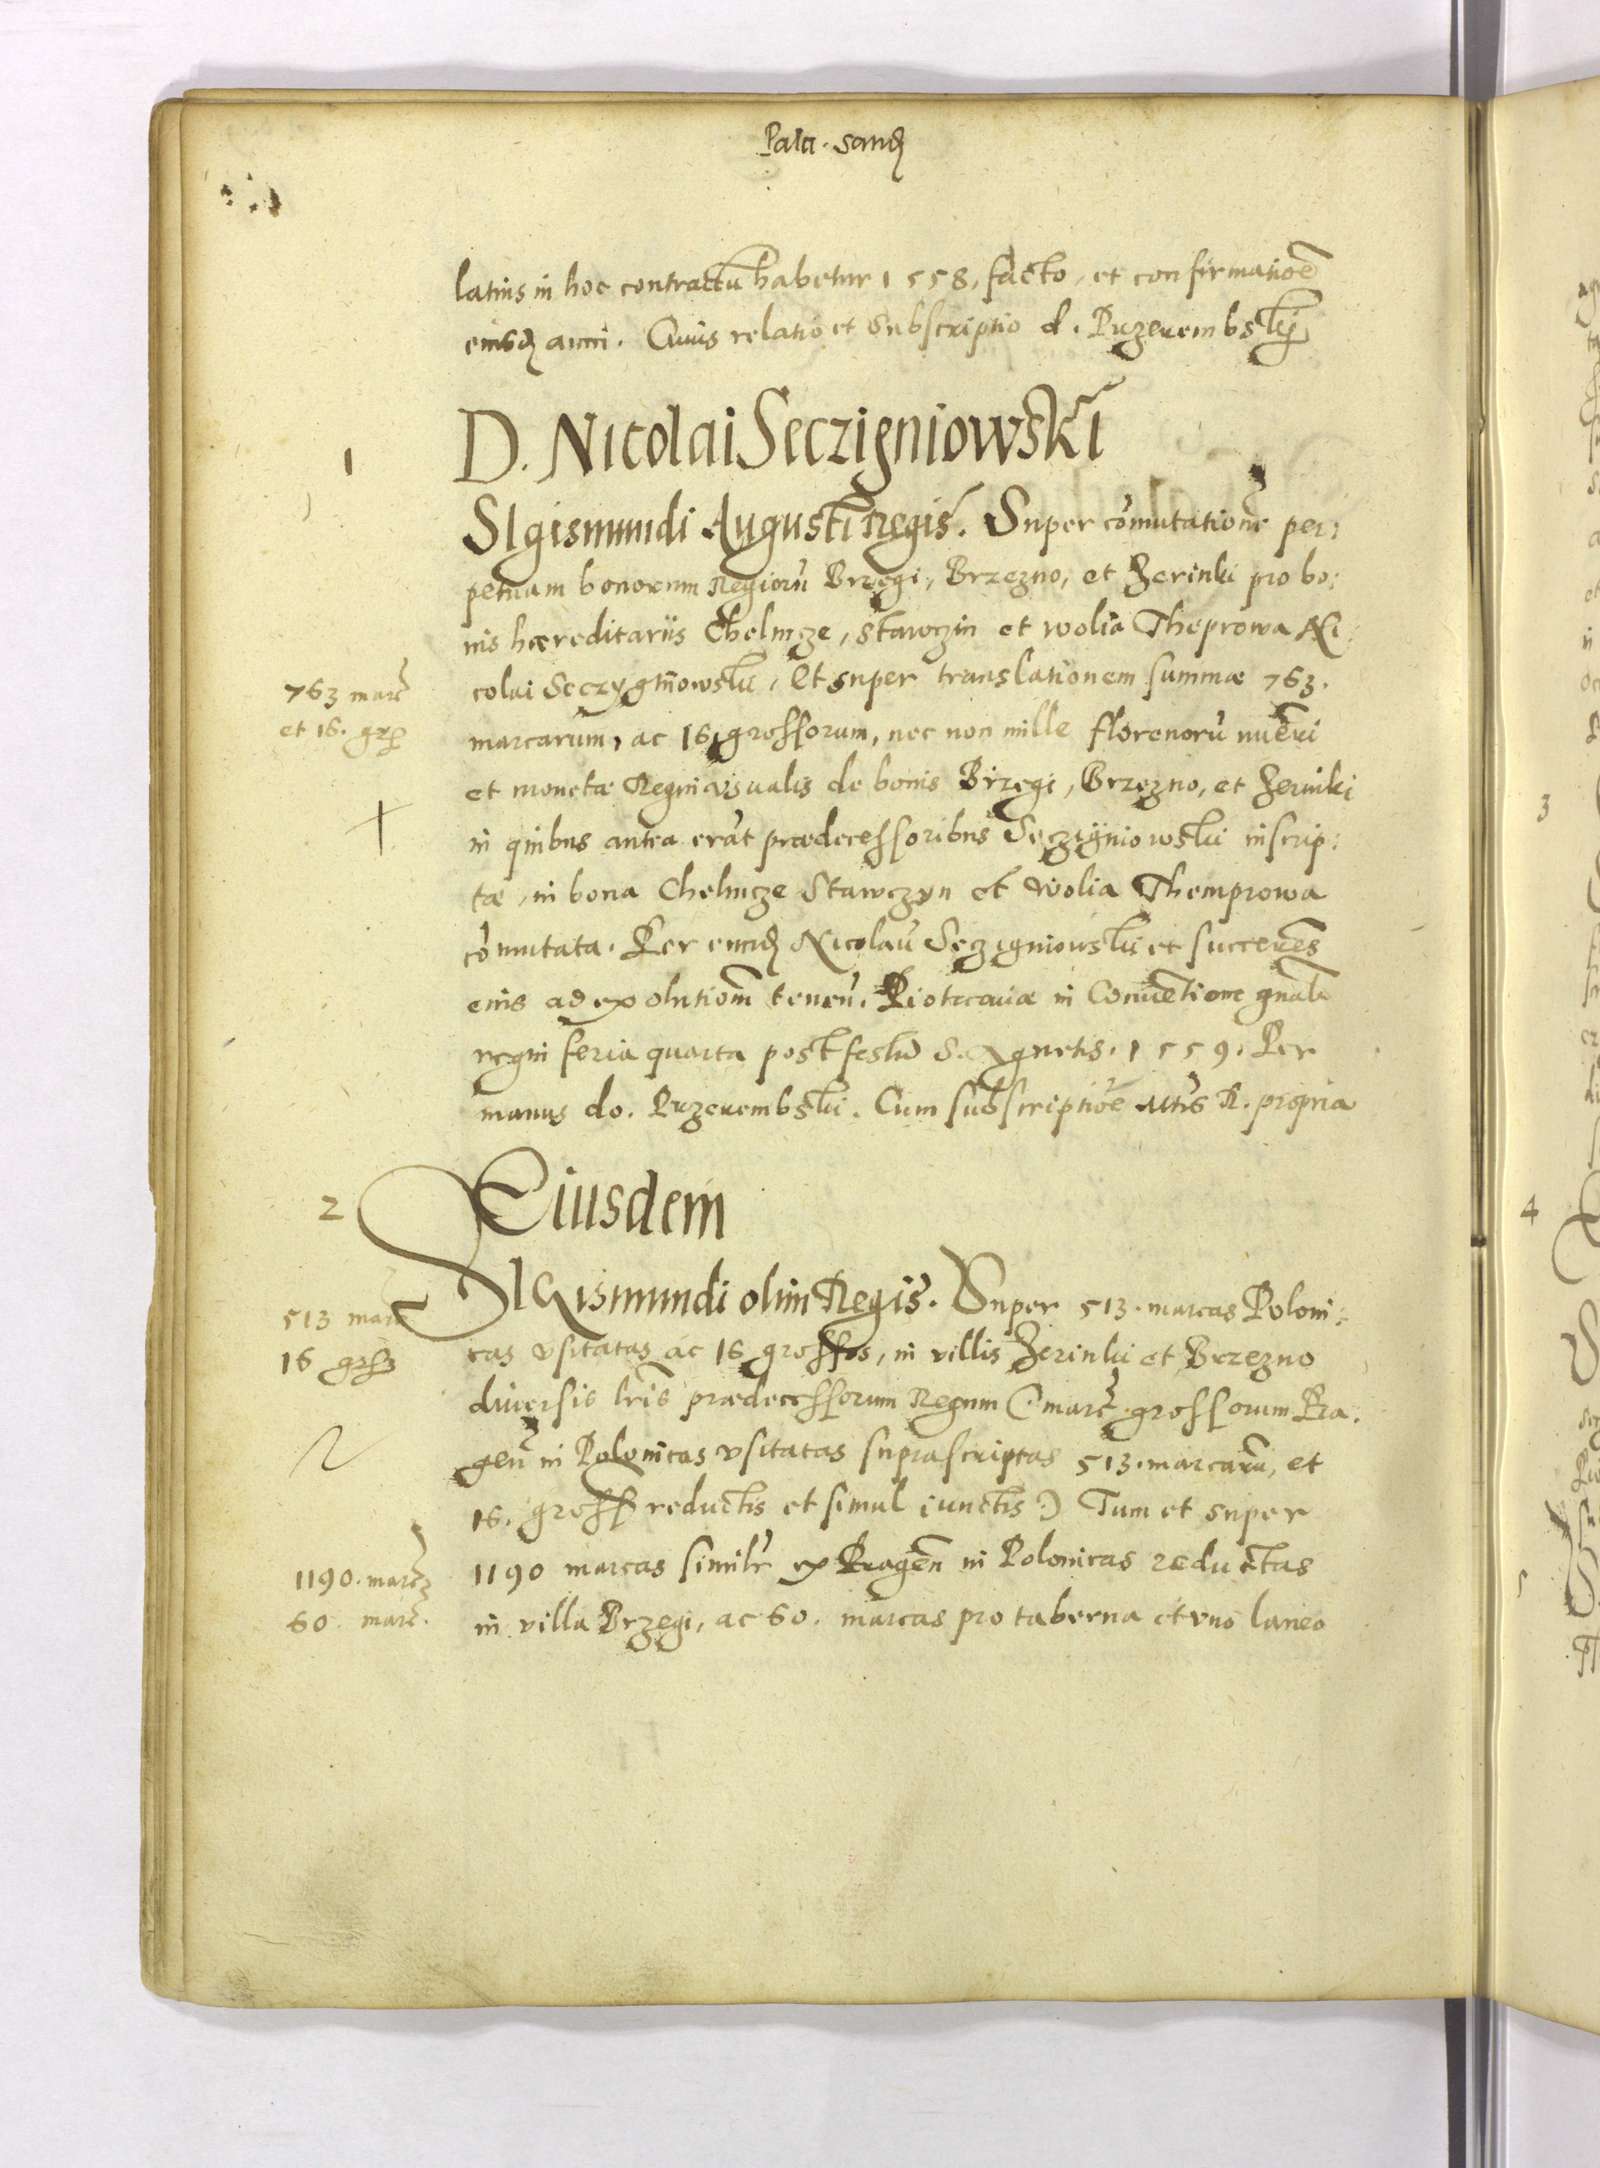 Pala. Sand
latius in hoc contractu habetur 1558, facto, et confirmatiōe
eiusd anni. Cuius relatio et subscriptio d. Przerembskij
1
D. Nicolai Seczigniowskī
SIgismundi Augusti Regis. Super cōmutationē per:
petuam bonorum Regiorū Brzegi, Brzezno, et Zerinki pro bo:
nis hæreditariis Chelmcze, Stawczin et wolia Theprowa Ni:
colai Seczygniowski, Et super translationem summæ 763.
763 marc
et 16. gr
marcarum, ac 16 grossorum, nec non mille florenorū nuēri
et monetæ Regni vsualis de bonis Brzegi, Brzezno, et Zerniki
in quibus antea erāt prædecessoribus Seczigniowski inscrip:
tæ, in bona Chelmcze Stawczyn et wolia Themprowa
cōmutata. Per eund Nicolaū Seczigniowski et succeres
eius ad exolutionē tenen. Piotrcoviæ in Conventione gnali
regni feria quarta post festū S. Agnetis. 1559. Per
manus do. Przerembski. Cum subscriptiōe Mtis R. propria
2
Eiusdem
SIGismundi olim Regis. Super 513. marcas Poloni:
513 marc
16 gross
cas vsitatas ac 16 grossos, in villis Zerinki et Brzezno
diversis lris prædecessorum Regum (: marc. grossorum Pra.
gen in Polonicas vsitatas suprascriptas 513. marcarū, et
16. gross reductis et simul iunctis :) Tum et super
1190. marc
60. marc.
1190 marcas similr ex Pragen in Polonicas reductas
in villa Brzegi, ac 60. marcas pro taberna et vno laneo
3
4
5